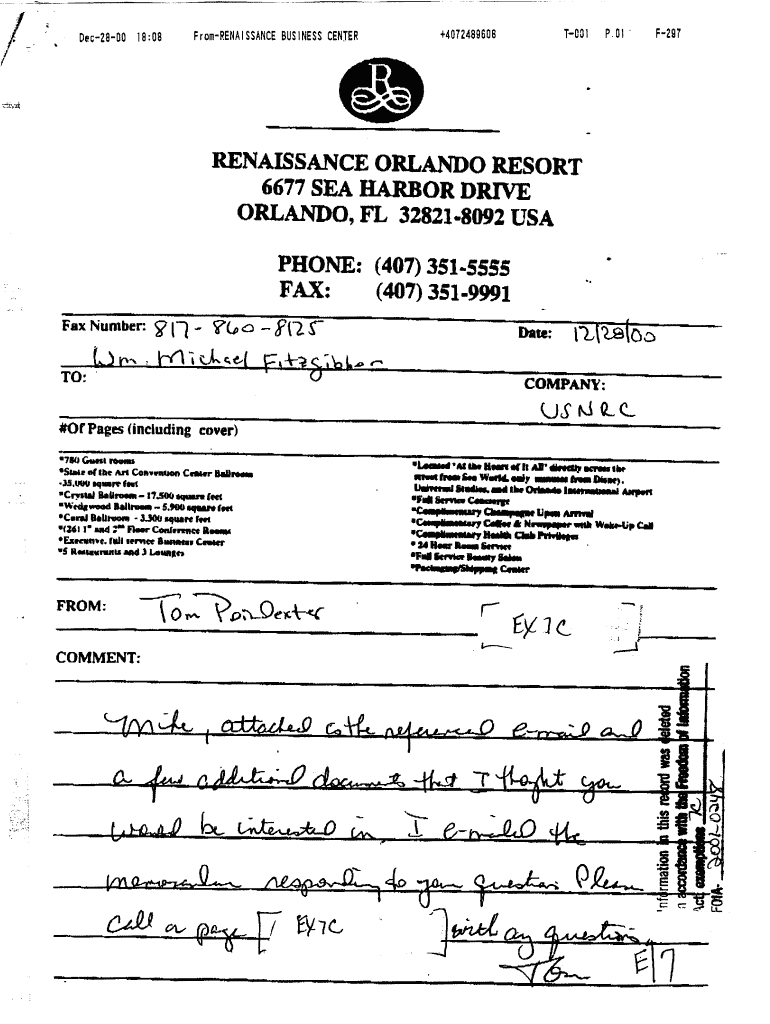 Dec-28-00 18:08 From-RENAISSANCE BUSINESS CENTER +4072489608 T-001 P.01 F-297
R
RENAISSANCE ORLANDO RESORT
6677 SEA HARBOR DRIVE
ORLANDO, FL 32821-8092 USA
PHONE: (407) 351-5555
FAX: (407) 351-9991
Fax Number: 817-860-8125 Date: 12/28/00
Wm. Michael Fitzgibbon
TO: COMPANY:
USNRC
#Of Pages (including cover)
*780 Guest rooms
*State of the Art Convention Center Ballroom
-35,000 square feet
*Crystal Ballroom – 17,500 square feet
*Wedgwood Ballroom – 5,900 square feet
*Coral Ballroom - 3,300 square feet
*(26) 1st and 2nd Floor Conference Rooms
*Executive, full service Business Center
*5 Restaurants and 3 Lounges
*Located 'At the Heart of It All' directly across the
street from Sea World, only minutes from Disney,
Universal Studios, and the Orlando International Airport
*Full Service Concierge
*Complimentary Champagne Upon Arrival
*Complimentary Coffee & Newspaper with Wake-Up Call
*Complimentary Health Club Privileges
* 24 Hour Room Service
*Full Service Beauty Salon
*Packaging/Shipping Center
FROM: Tom Poindexter [EX 7C]
COMMENT:
Mike, attached is the referenced e-mail and
a few additional documents that I thought you
would be interested in. I e-mailed the
memorandum responding to your question. Please
call or page [ EX 7C ] with any questions.
Tom
E/7
Information in this record was deleted
in accordance with the Freedom of Information
Act, exemptions 7C
FOIA- 2001-0248